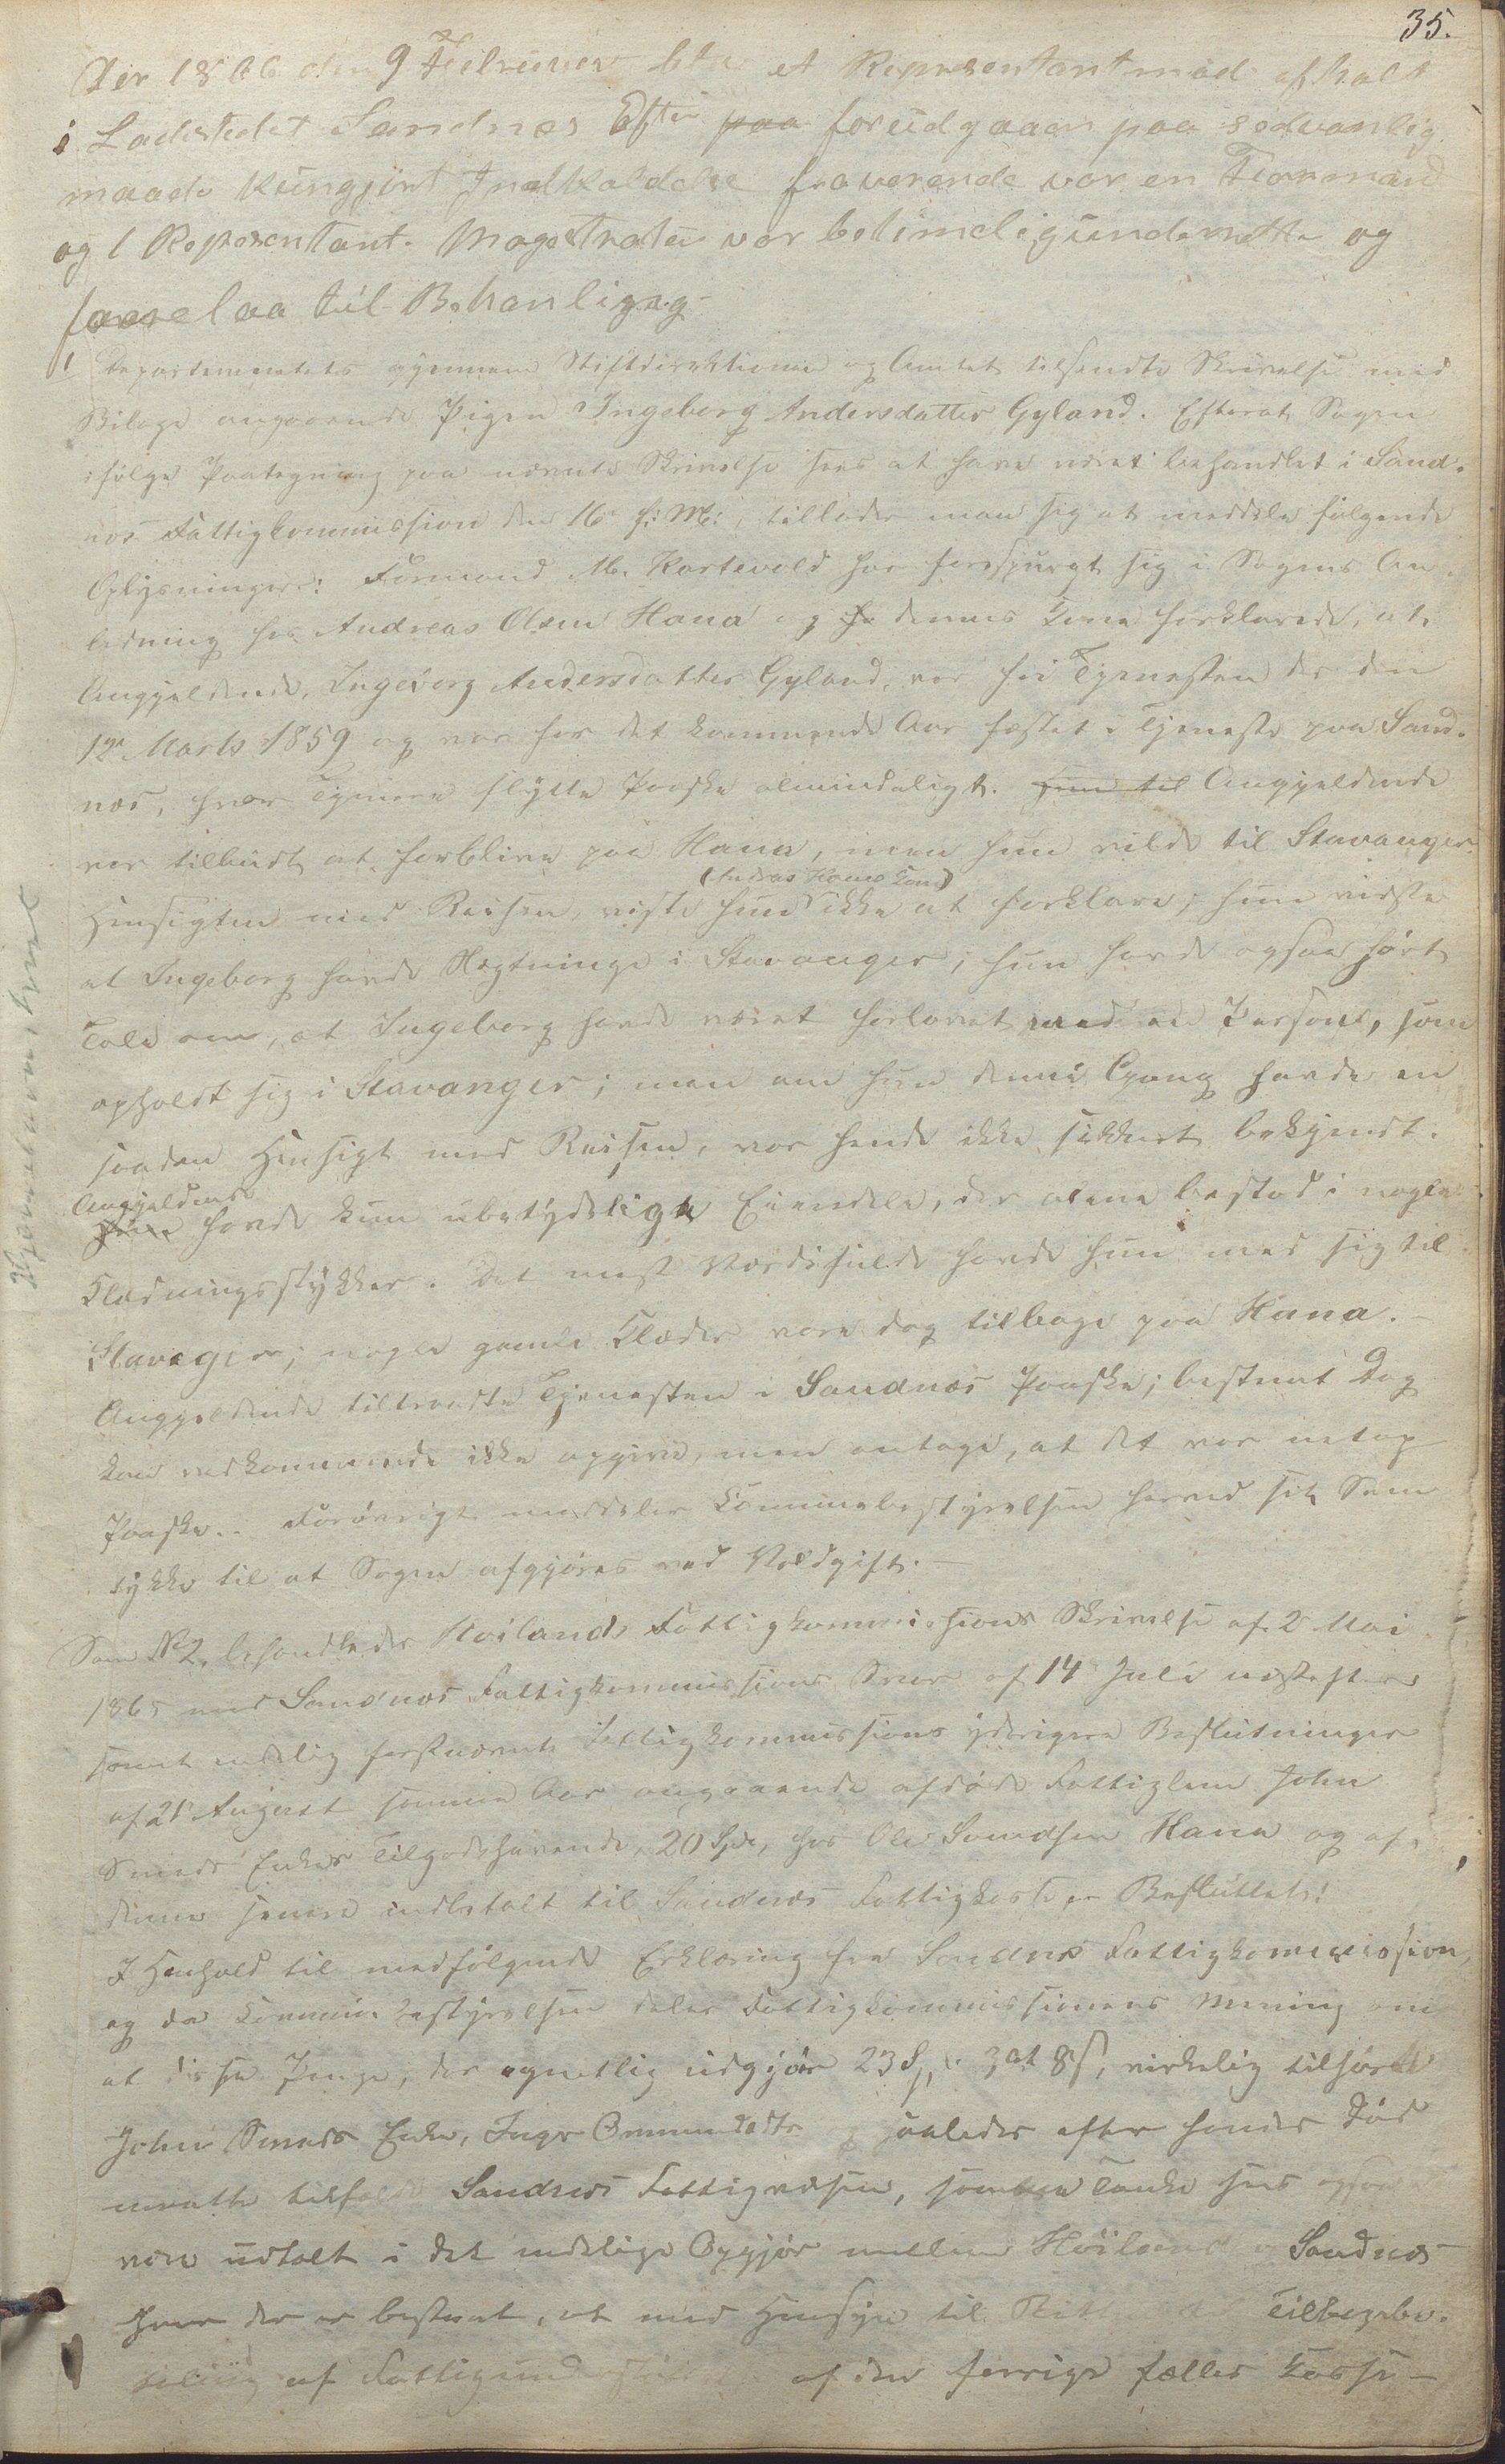 35.
Aar 1866 den 9 Februar blev et Representantmød afhalt
i Ladestedet Sandnes Efter paa forudgaaen paa sedvanlig
maade kungjort Indkaldelse fraverende var en Formand
og 1 Representant. Magestraten var betimelig underrette og
forelaa til Behanligng-
1 Departementets gjennem Stiftdirektionen og Amtet tilsendte Skrivelse med
Bilage angaaende Pigen Ingeborg Andersdatter Gyland. Efterat Sagen
ifølge Paategning paa nævnte Skrivelse sees at have været behandlet i Sand-
nes Fattigkommission den 16 f: M:, tillader man sig at meddele følgende
Oplysninger: Formand M. Kartevold har forespurgt sig i Sagens An-
ledning hos Andreas Olsen Hana og dennes Kone forklarede, at
Angjeldende, Ingeborg Andersdatter Gyland, var fri Tjenesten der den
12 Marts 1859 og var for det kommende Aar fæstet i Tjeneste paa Sand-
nes, hvor Tjenere flytte Paaske almindeligt. Hun til Angjeldende
var tilbudt at forblive paa Hana, men hun vilde til Stavanger.
(Andreas Hanas Kone)
Hensigten med Reisen, viste hun ikke at forklare; hun vidste
at Ingeborg havde Slægtninge i Stavanger; hun havde ogsaa hørt
Tale om, at Ingeborg havde været forlovet med en Person, som
opholdt sig i Stavanger; men om hun denne Gang havde en
saadan Hensigt med Reisen, var hende ikke sikkert bekjendt.
Angjeldende
Hun havde kun ubetydelige Eiendele, der alene bestod i nogle
Klædningsstykker. Det mest Værdifulde havde hun med sig til
Stavager; nogle gamle Klæder vare dog tilbage paa Hana.-
Angjeldende tiltraadte Tjenesten i Sandnes Paaske; bestemt Dag
kan vedkommende ikke opgive, men antage, at det var netop
Paaske. Forøvrigt meddeler Kommunebestyrelsen herved sit Sam-
tykke til at Sagen afgjøres ved Voldgift.-
Som No 2. behandledes Høilands Fattigkommissions Skrivelse af 2 Mai
1865 med Sandnes Fattigkommissions Svar af 14 Juli næstefter
samt endelig førstnævnte Fattigkommissions yderigere Beslutninger
af 21 August samme Aar angaaende afdøde Fattiglem John
Smeds Enkes Tilgodehavende, 20 Spd, hos Ole Svendsen Hana og af
denne senere indbetalt til Sandnes Fattigkasse. Besluttet:
I Henhold til medfølgende Erklæring fra Sandnes Fattigkommission,
og da Kommunebestyrelsen deler Fattigkommissionens Mening om
at disse Penge, der egentlig udgjør 23 Sp. 3 ort 8 s, virkelig tilhørte
John Smeds Enke, Inger Ommundsdtr og saaledes efter hendes Død
maatte tilfalde Sandnes Fattigvæsen, samme Tanke sees ogsaa at
være udtalt i det endelige Opgjør mellem Høiland og Sandnes
hvor der er bestemt, at med Hensyn til Tilbagebe-
taling af Fattigunderstøttelse af den forrige fælles Kasse-